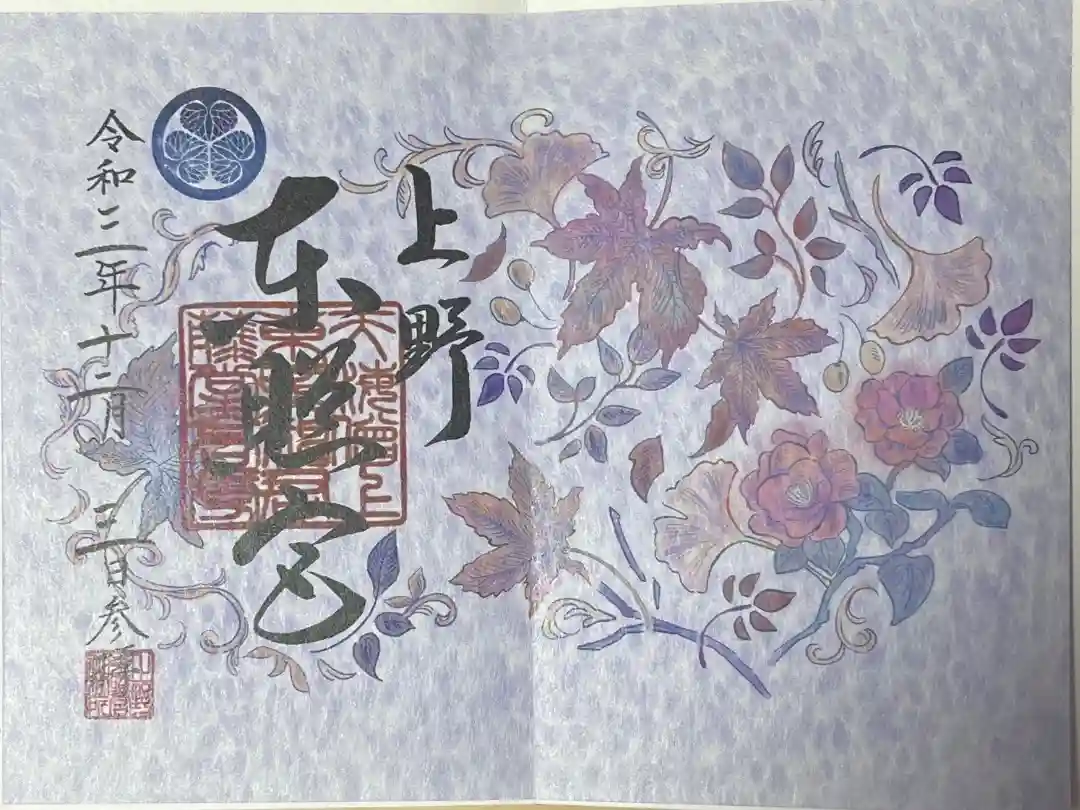 上野
東照宮
令和三年十二月三日参拝